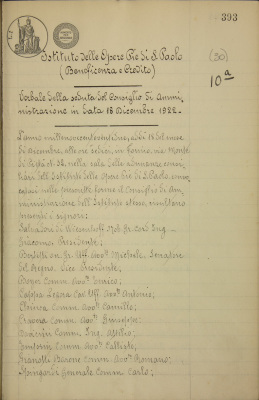 393
(50)
10ª
Istituto delle Opere Pie di S. Paolo
(Beneficenza e Credito)
Verbale della seduta del Consiglio di Ammi-
nistrazione in data 18 Dicembre 1922.
L'anno millenovecentoventidue, addì 18 del mese
di dicembre, alle ore sedici, in Torino, via Monte
di Pietà n. 32, nella sala delle adunanze consi-
liari dell'Istituto delle Opere Pie di S. Paolo, convo-
catosi nelle prescritte forme il Consiglio di Am-
ministrazione dell'Istituto stesso, risultano
presenti i signori:
Salvadori di Wiesenhoff Nob. Gr. Cord. Ing.
Giacomo Presidente;
Bertetti Gr. Uff. Avv. Michele Senatore
del Regno, Vice Presidente;
Comm. Avv. Enrico;
Cappa Legora Cav. Uff. Avv. Antonio;
Comm. Avv. Camillo;
Comm. Avv. Giuseppe;
Comm. Ing. Attilio;
Comm. Avv. Callisto;
Gianotti Barone Comm. Avv. Romano;
Generale Comm. Carlo;